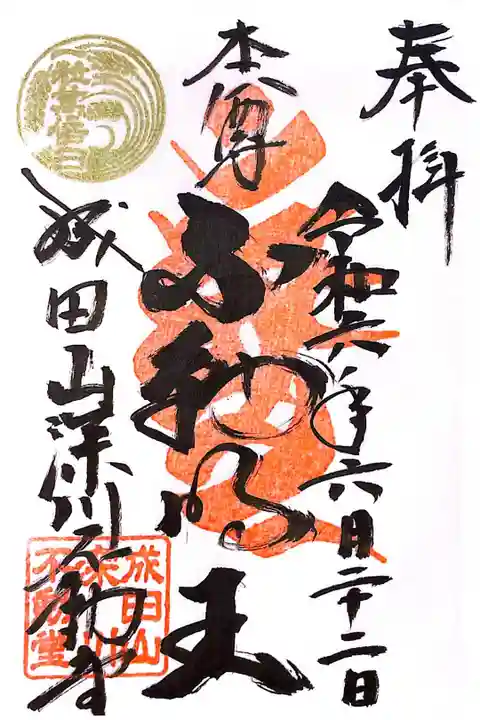 奉拝
令和六年六月二十二日
本尊
不動明王
成田山深川不動堂
成田山
深川
不動堂